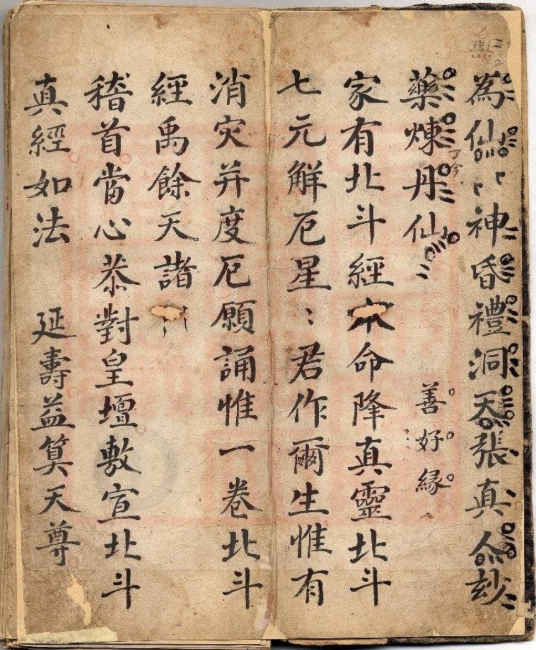 為仙〻神昏禮洞天張真人玅
藥煉丹仙 善好緣
家有北斗經本命降真靈北斗
七元解厄星〻君作爾生惟有
消灾并度厄願誦惟一卷北斗
經禹餘天諸
稽首當心恭對皇壇敷宣北斗
真經如法 延壽益筭天尊